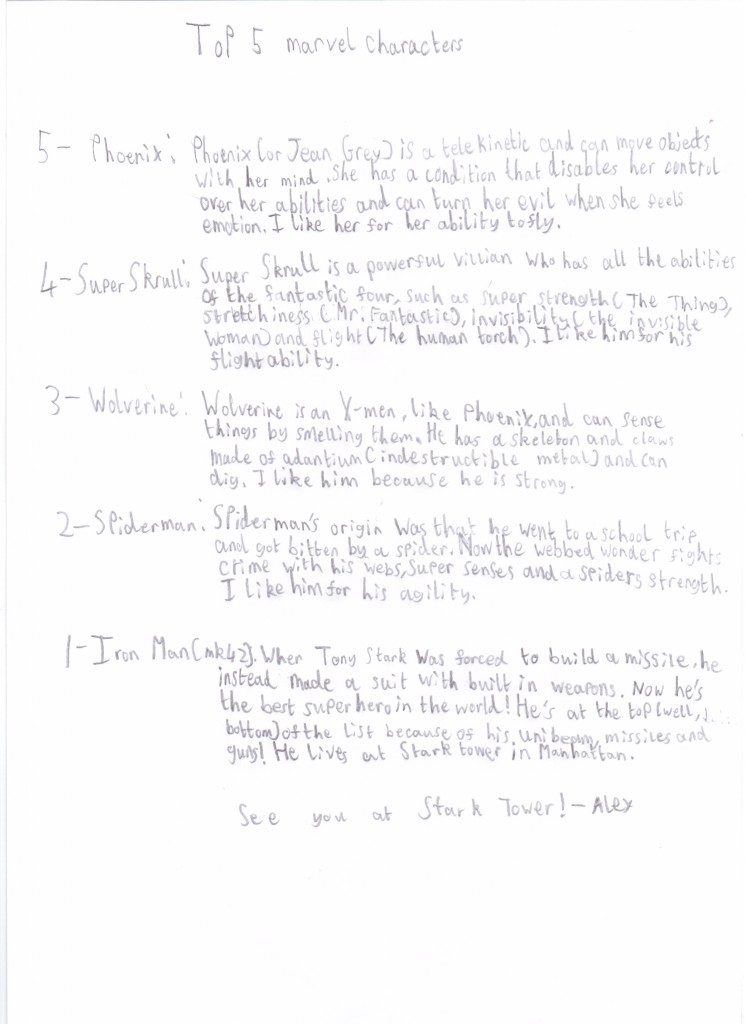 Top 5 marvel characters
5- Phoenix: Phoenix (or Jean Grey) is a telekinetic and can move objects
with her mind. She has a condition that disables her control
over her abilities and can turn her evil when she feels
emotion. I like her for her ability to fly.
4-Super Skrull: Super Skrull is a powerful villian who has all the abilities
of the fantastic four, such as super strength (The Thing),
stretchiness (Mr. Fantastic), invisibility (the invisible
woman) and flight (The human torch). I like him for his
flight ability.
3-Wolverine: Wolverine is an X-men, like Phoenix, and can sense
things by smelling them. He has a skeleton and claws
made of adantium (indestructible metal) and can
dig. I like him because he is strong.
2-Spiderman: Spiderman's origin was that he went to a school trip
and got bitten by a spider. Now the webbed wonder fights
crime with his webs, super senses and a spiders strength.
I like him for his agility.
1-Iron Man (mk42). When Tony Stark was forced to build a missile, he
instead made a suit with built in weapons. Now he's
the best superhero in the world! He's at the top (well,
bottom) of the list because of his unibeam, missiles and
guns! He lives at Stark tower in Manhattan.
See you at Stark Tower! - Alex